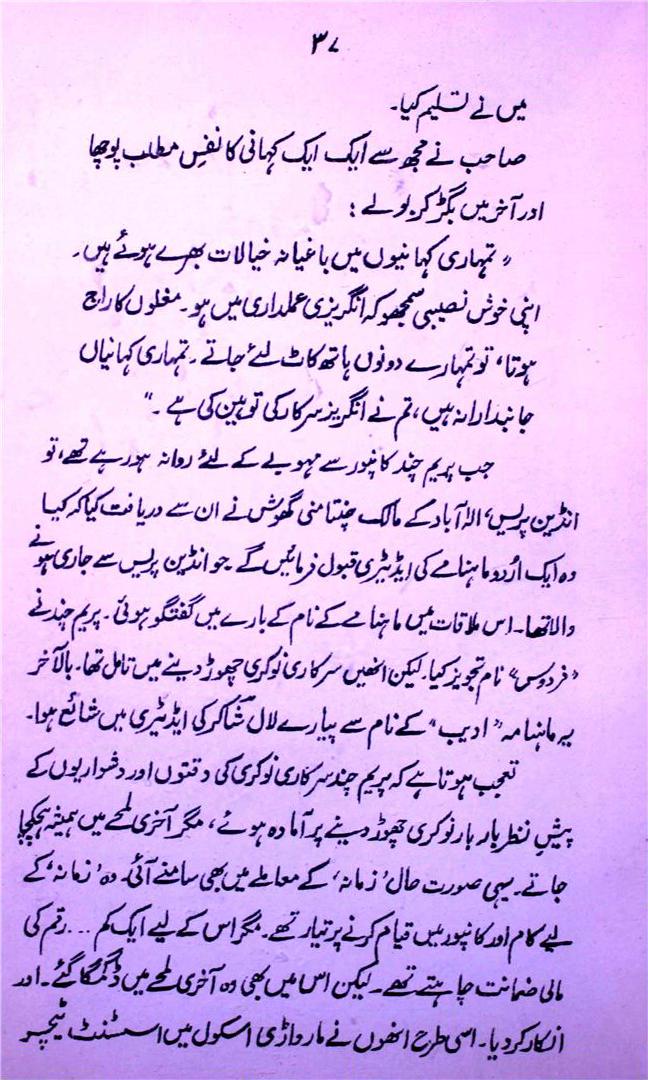 ۳۷
میں نے تسلیم کیا۔
صاحب نے مجھ سے ایک ایک کہانی کا نفسِ مطلب پوچھا
اور آخر میں بگڑ کر بولے :
" تمہاری کہانیوں میں باغیانہ خیالات بھرے ہوئے ہیں۔
اپنی خوش نصیبی سمجھو کہ انگریزی عملداری میں ہو۔ مغلوں کا راج
ہوتا، تو تمہارے دونوں ہاتھ کاٹ لئے جاتے۔ تمہاری کہانیاں
جانبدارانہ ہیں، تم نے انگریز سرکار کی توہین کی ہے ۔"
جب پریم چند کانپور سے مہوبے کے لئے روانہ ہو رہے تھے، تو
انڈین پریس، الٰہ آباد کے مالک چنتامنی گھوش نے ان سے دریافت کیا کہ کیا
وہ ایک اُردو ماہنامے کی ایڈیٹری قبول فرمائیں گے۔ جو انڈین پریس سے جاری ہونے
والا تھا۔ اس ملاقات میں ماہنامے کے نام کے بارے میں گفتگو ہوئی۔ پریم چند نے
"فردوس" نام تجویز کیا۔ لیکن انھیں سرکاری نوکری چھوڑ دینے میں تامل تھا۔ بالآخر
یہ ماہنامہ "ادیب" کے نام سے پیارے لال شاکر کی ایڈیٹری میں شائع ہوا۔
تعجب ہوتا ہے کہ پریم چند سرکاری نوکری کی دقتوں اور دشواریوں کے
پیشِ نظر بار بار نوکری چھوڑ دینے پر آمادہ ہوئے، مگر آخری لمحے میں ہمیشہ ہچکچا
جاتے۔ یہی صورت حال 'زمانہ' کے معاملے میں بھی سامنے آئی۔ وہ 'زمانہ' کے
لیے کام اور کانپور میں قیام کرنے پر تیار تھے۔ مگر اس کے لیے ایک کم ... رقم کی
مالی ضمانت چاہتے تھے۔ لیکن اس میں بھی وہ آخری لمحے میں ڈگمگا گئے۔ اور
انکار کر دیا۔ اسی طرح انھوں نے مارواڑی اسکول میں اسسٹنٹ ٹیچر